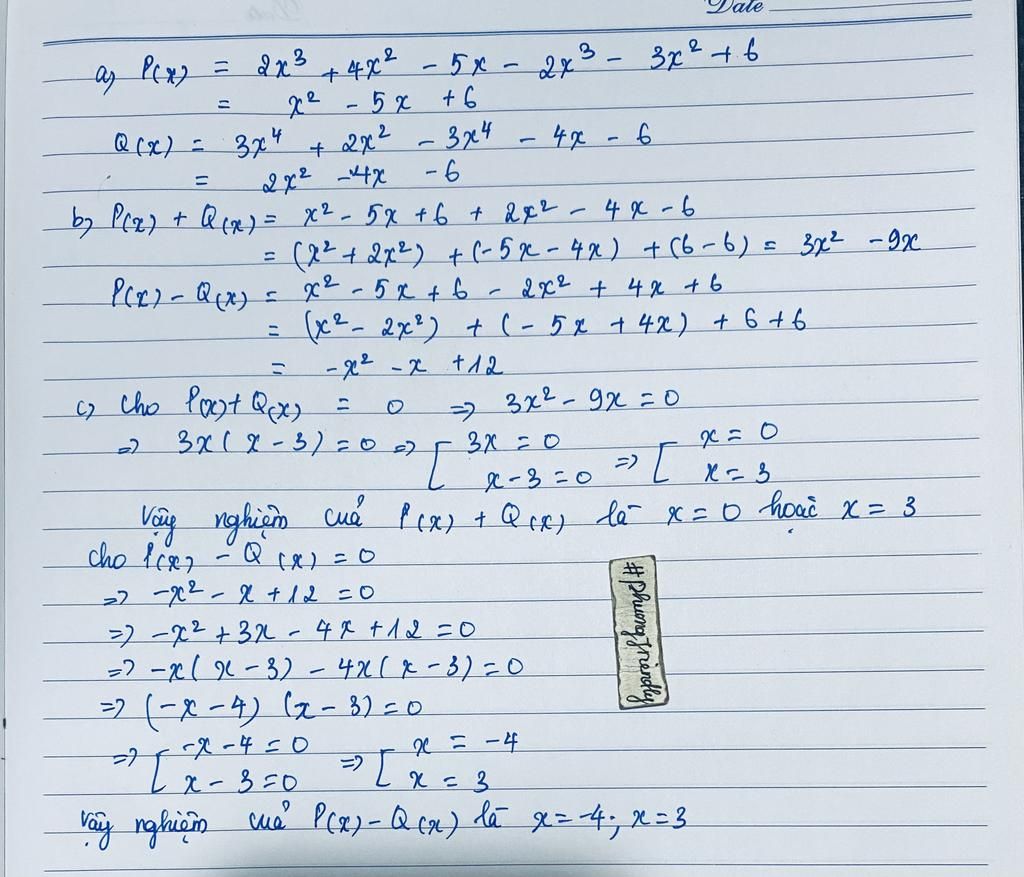 Date
a) P(x) = 2x³ + 4x² - 5x - 2x³ - 3x² + 6
= x² - 5x + 6
Q(x) = 3x⁴ + 2x² - 3x⁴ - 4x - 6
= 2x² - 4x - 6
b) P(x) + Q(x) = x² - 5x + 6 + 2x² - 4x - 6
= (x² + 2x²) + (-5x - 4x) + (6 - 6) = 3x² - 9x
P(x) - Q(x) = x² - 5x + 6 - 2x² + 4x + 6
= (x² - 2x²) + (-5x + 4x) + 6 + 6
= -x² - x + 12
c) cho P(x) + Q(x) = 0 => 3x² - 9x = 0
=> 3x(x - 3) = 0 => [ 3x = 0 => [ x = 0
x - 3 = 0 x = 3
Vậy nghiệm cuả P(x) + Q(x) là x = 0 hoặc x = 3
cho P(x) - Q(x) = 0
=> -x² - x + 12 = 0
=> -x² + 3x - 4x + 12 = 0
=> -x(x - 3) - 4x(x - 3) = 0
=> (-x - 4) (x - 3) = 0
=> [ -x - 4 = 0 => [ x = -4
x - 3 = 0 x = 3
Vậy nghiệm cuả P(x) - Q(x) là x = -4; x = 3
#phuongfriendly